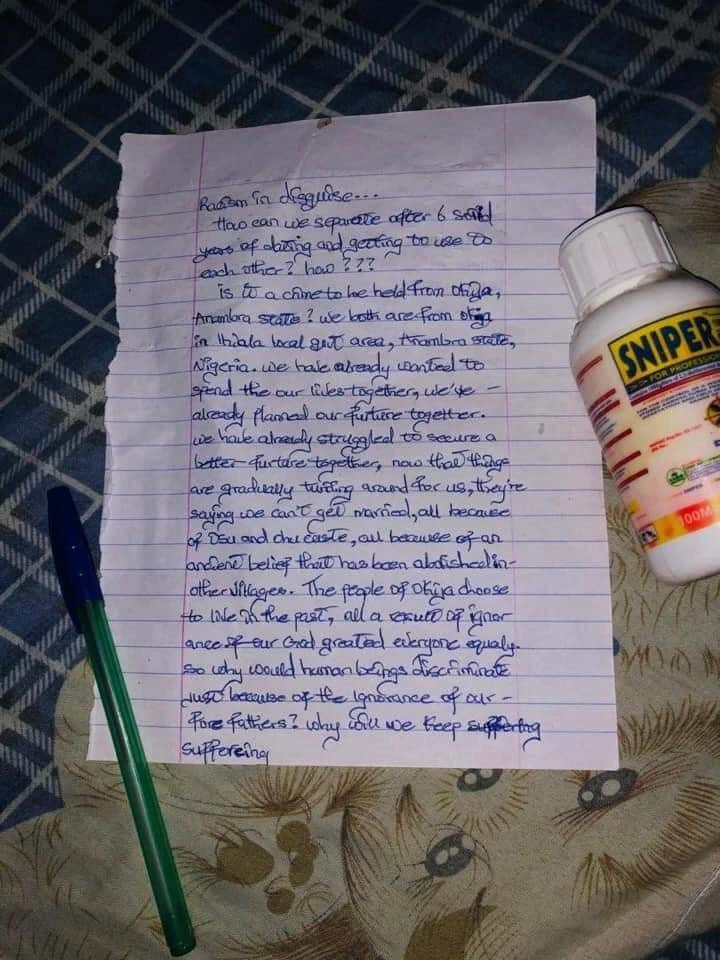 Racism in disguise...
How can we separate after 6 solid
years of dating and getting to use to
each other? how ???
is it a crime to be held from Okija,
Anambra state? we both are from Okija
in Ihiala local govt area, Anambra state,
Nigeria. we have already wanted to
spend the our lives together, we've -
already planned our furture together.
we have already struggled to secure a
better furture together, now that things
are gradually turning around for us, they're
saying we can't get married, all because
of Osu and chu caste, all because of an
ancient belief that has been abolished in-
other villages. The people of Okija choose
to live in the past, all a result of ignor
ance of our God greated everyone equaly.
so why would human beings discriminate
just because of the ignorance of our -
fore fathers? why will we keep suffering
suffereing
SNIPER
FOR PROFESSIONAL
100M